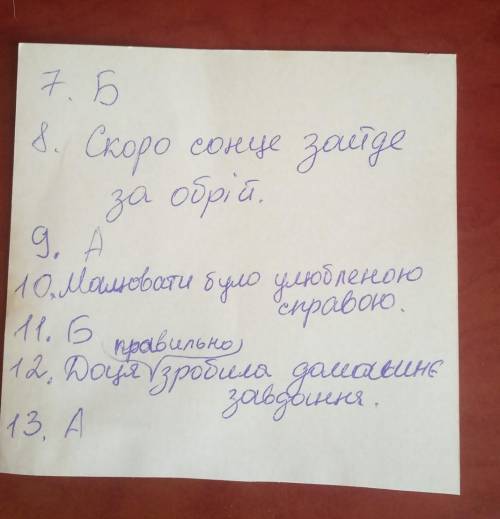 7. Б
8. Скоро сонце зайде
за обрій.
9. А
10. Малювати було улюбленою
справою.
11. Б
правильно
12. Даця зробила домашнє
завдання.
13. А